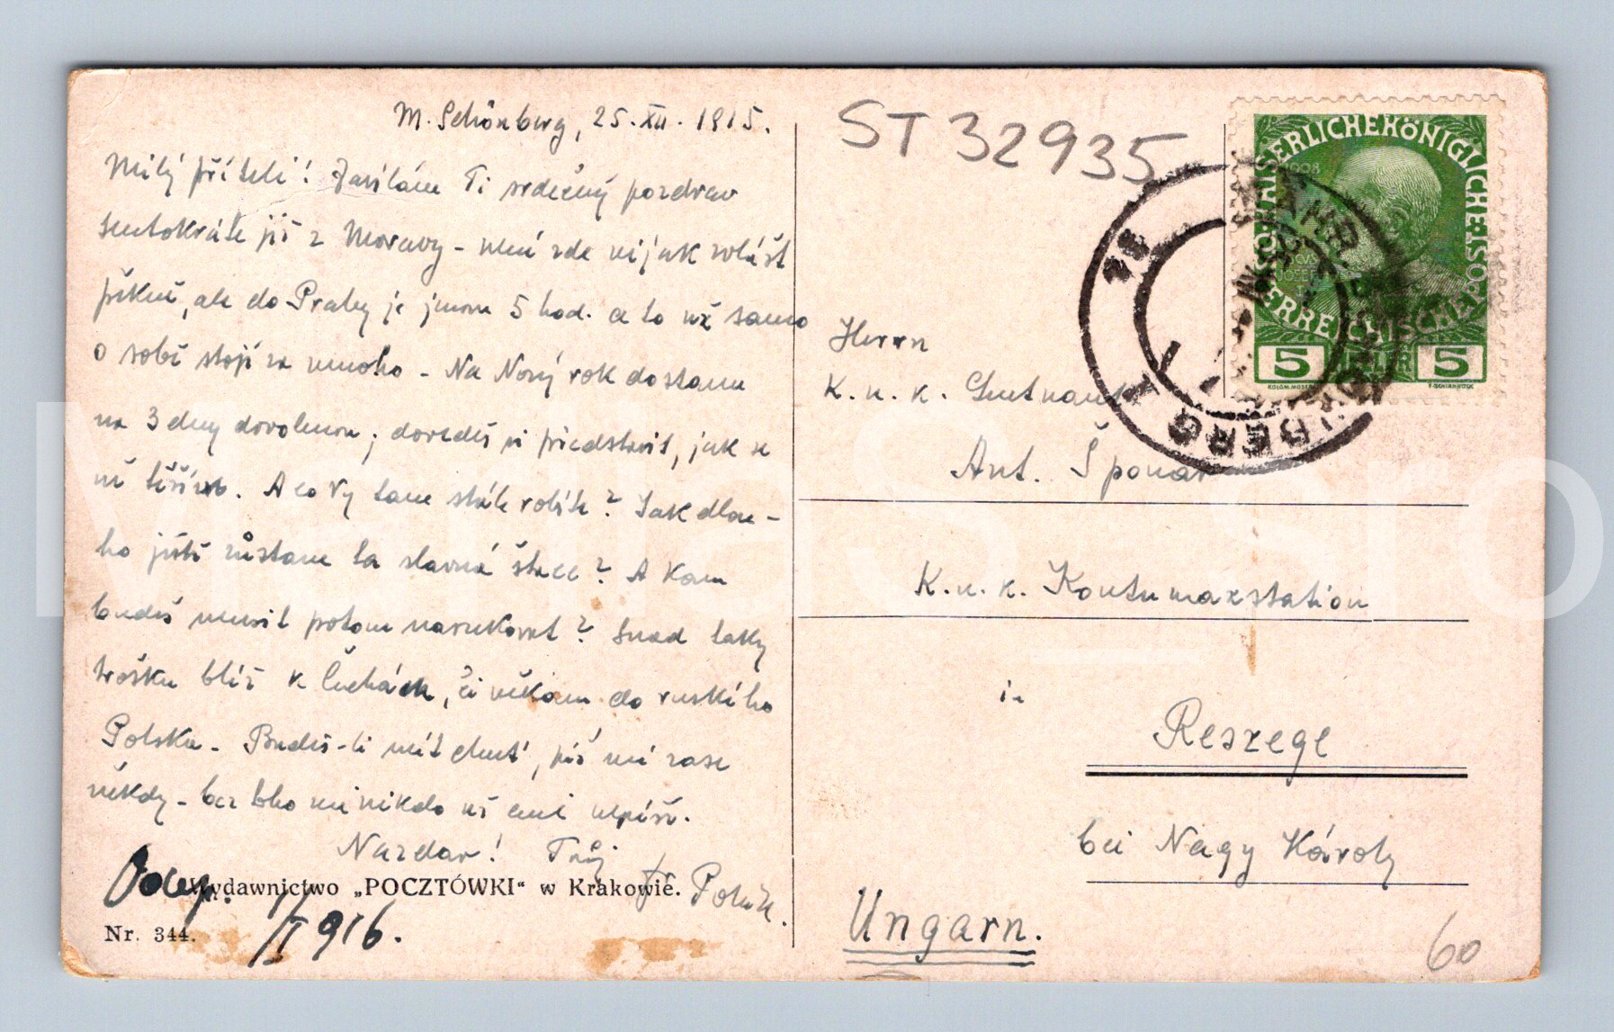 M. Schönberg, 25. XII. 1915.
Milý příteli! Zasílám Ti srdečný pozdrav
tentokráte již z Moravy - není zde nijak zvlášť
pěkně, ale do Prahy je jenom 5 hod. a to už samo
o sobě stojí za mnoho - Na Nový rok dostanu
na 3 dny dovolenou; dovedeš si představit, jak se
už těším. A co Vy tam stále robíte? Jak dlou-
ho ještě zůstane ta slavná štace? A kam
budeš musit potom narukovat? Snad taky
trošku blíž k Čechám, či někam do ruského
Polska - Budeš-li mít chuť, piš mi zase
někdy - bez toho mi nikdo už ani nepíše.
Nazdar! Tvůj
Wydawnictwo „POCZTÓWKI“ w Krakowie.
Nr. 344.
/I 916.
ST 32935
KAISERLICHE KÖNIGLICHE ÖSTERREICHISCHE
5 5
Herrn
K. u. k. Leutnant
Ant. Šponar
K. u. k. Kontumazstation
in
Reszege
bei Nagy Károly
Ungarn.
60